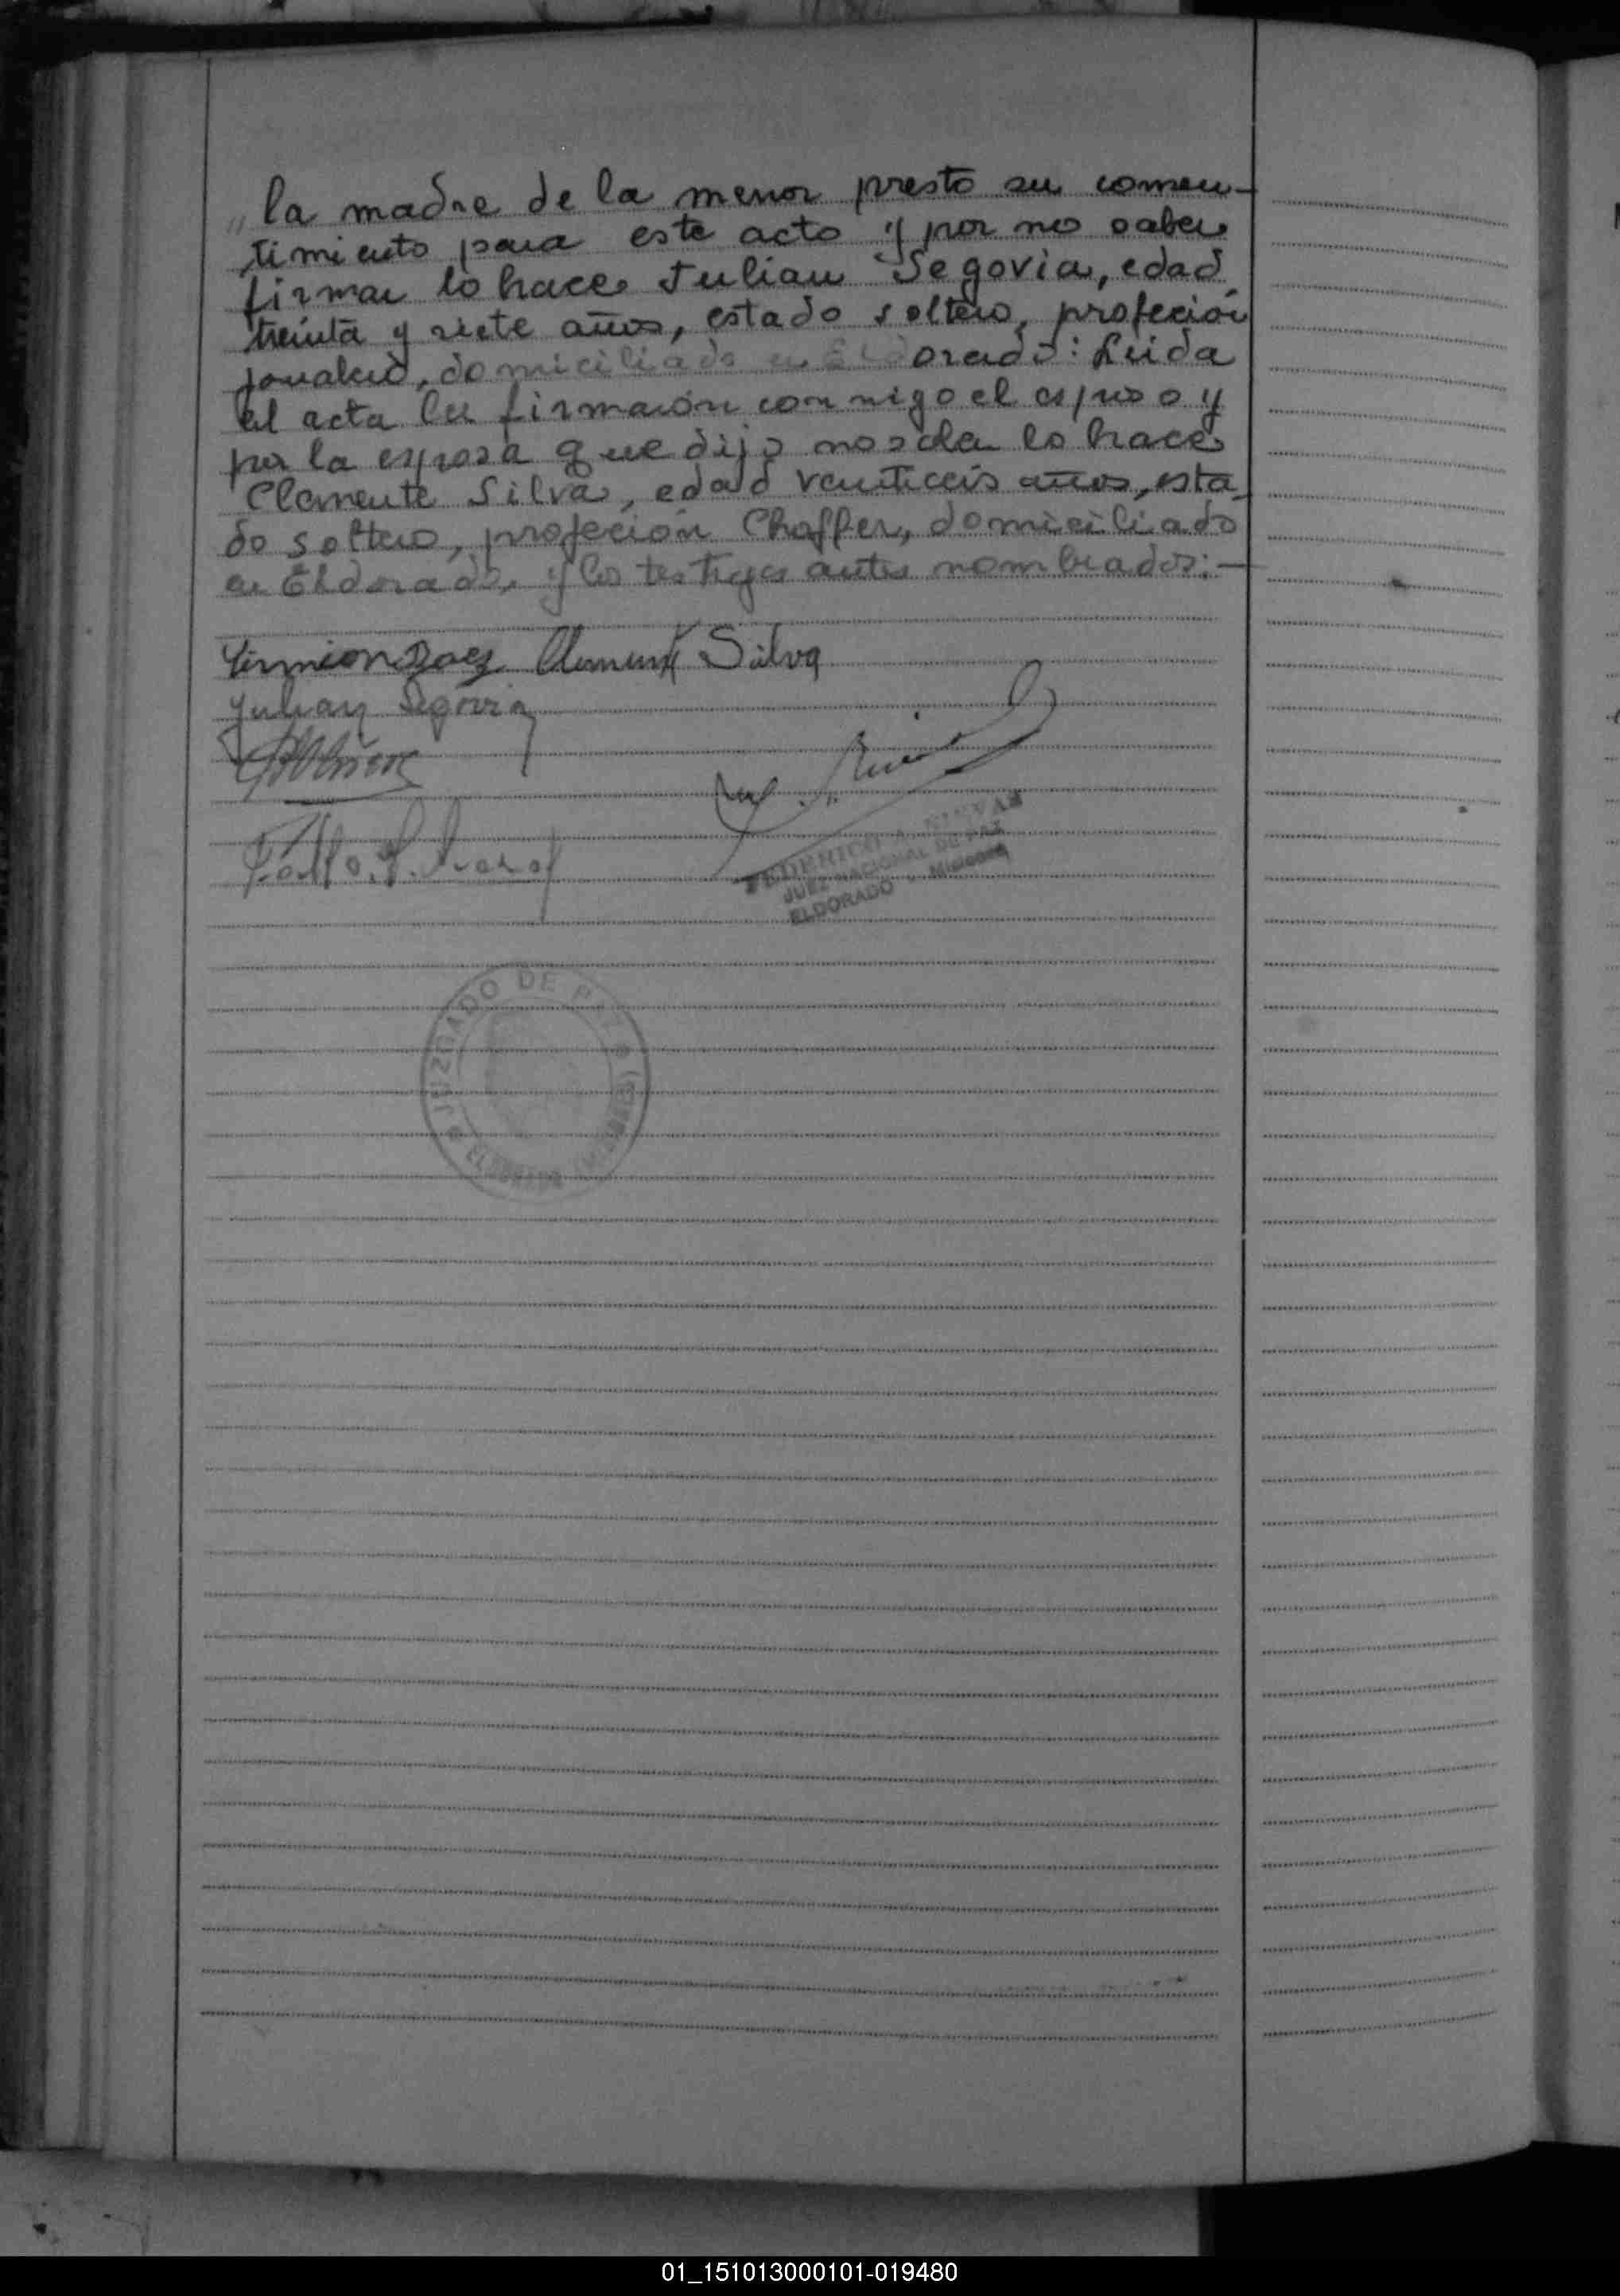 la madre de la menor presto su comen-
timiento para este acto y por no saber
firmar lo hace Julian Segovia, edad
treinta y siete años, estado soltero, profeción
jornalero, domiciliado en Eldorado: Leida
el acta la firmarón conmigo el esposo y
por la esposa que dijo no saber lo hace
Clemente Silva, edad venticeis años, esta-
do soltero, profeción Choffer, domiciliado
en Eldorado, y los testigos antes nombrados:-
Clemente Silva
Julian Segovia
FEDERICO A.
JUEZ NACIONAL DE PAZ
ELDORADO - Misiones
JUZGADO DE PAZ
ELDORADO
01_151013000101-019480